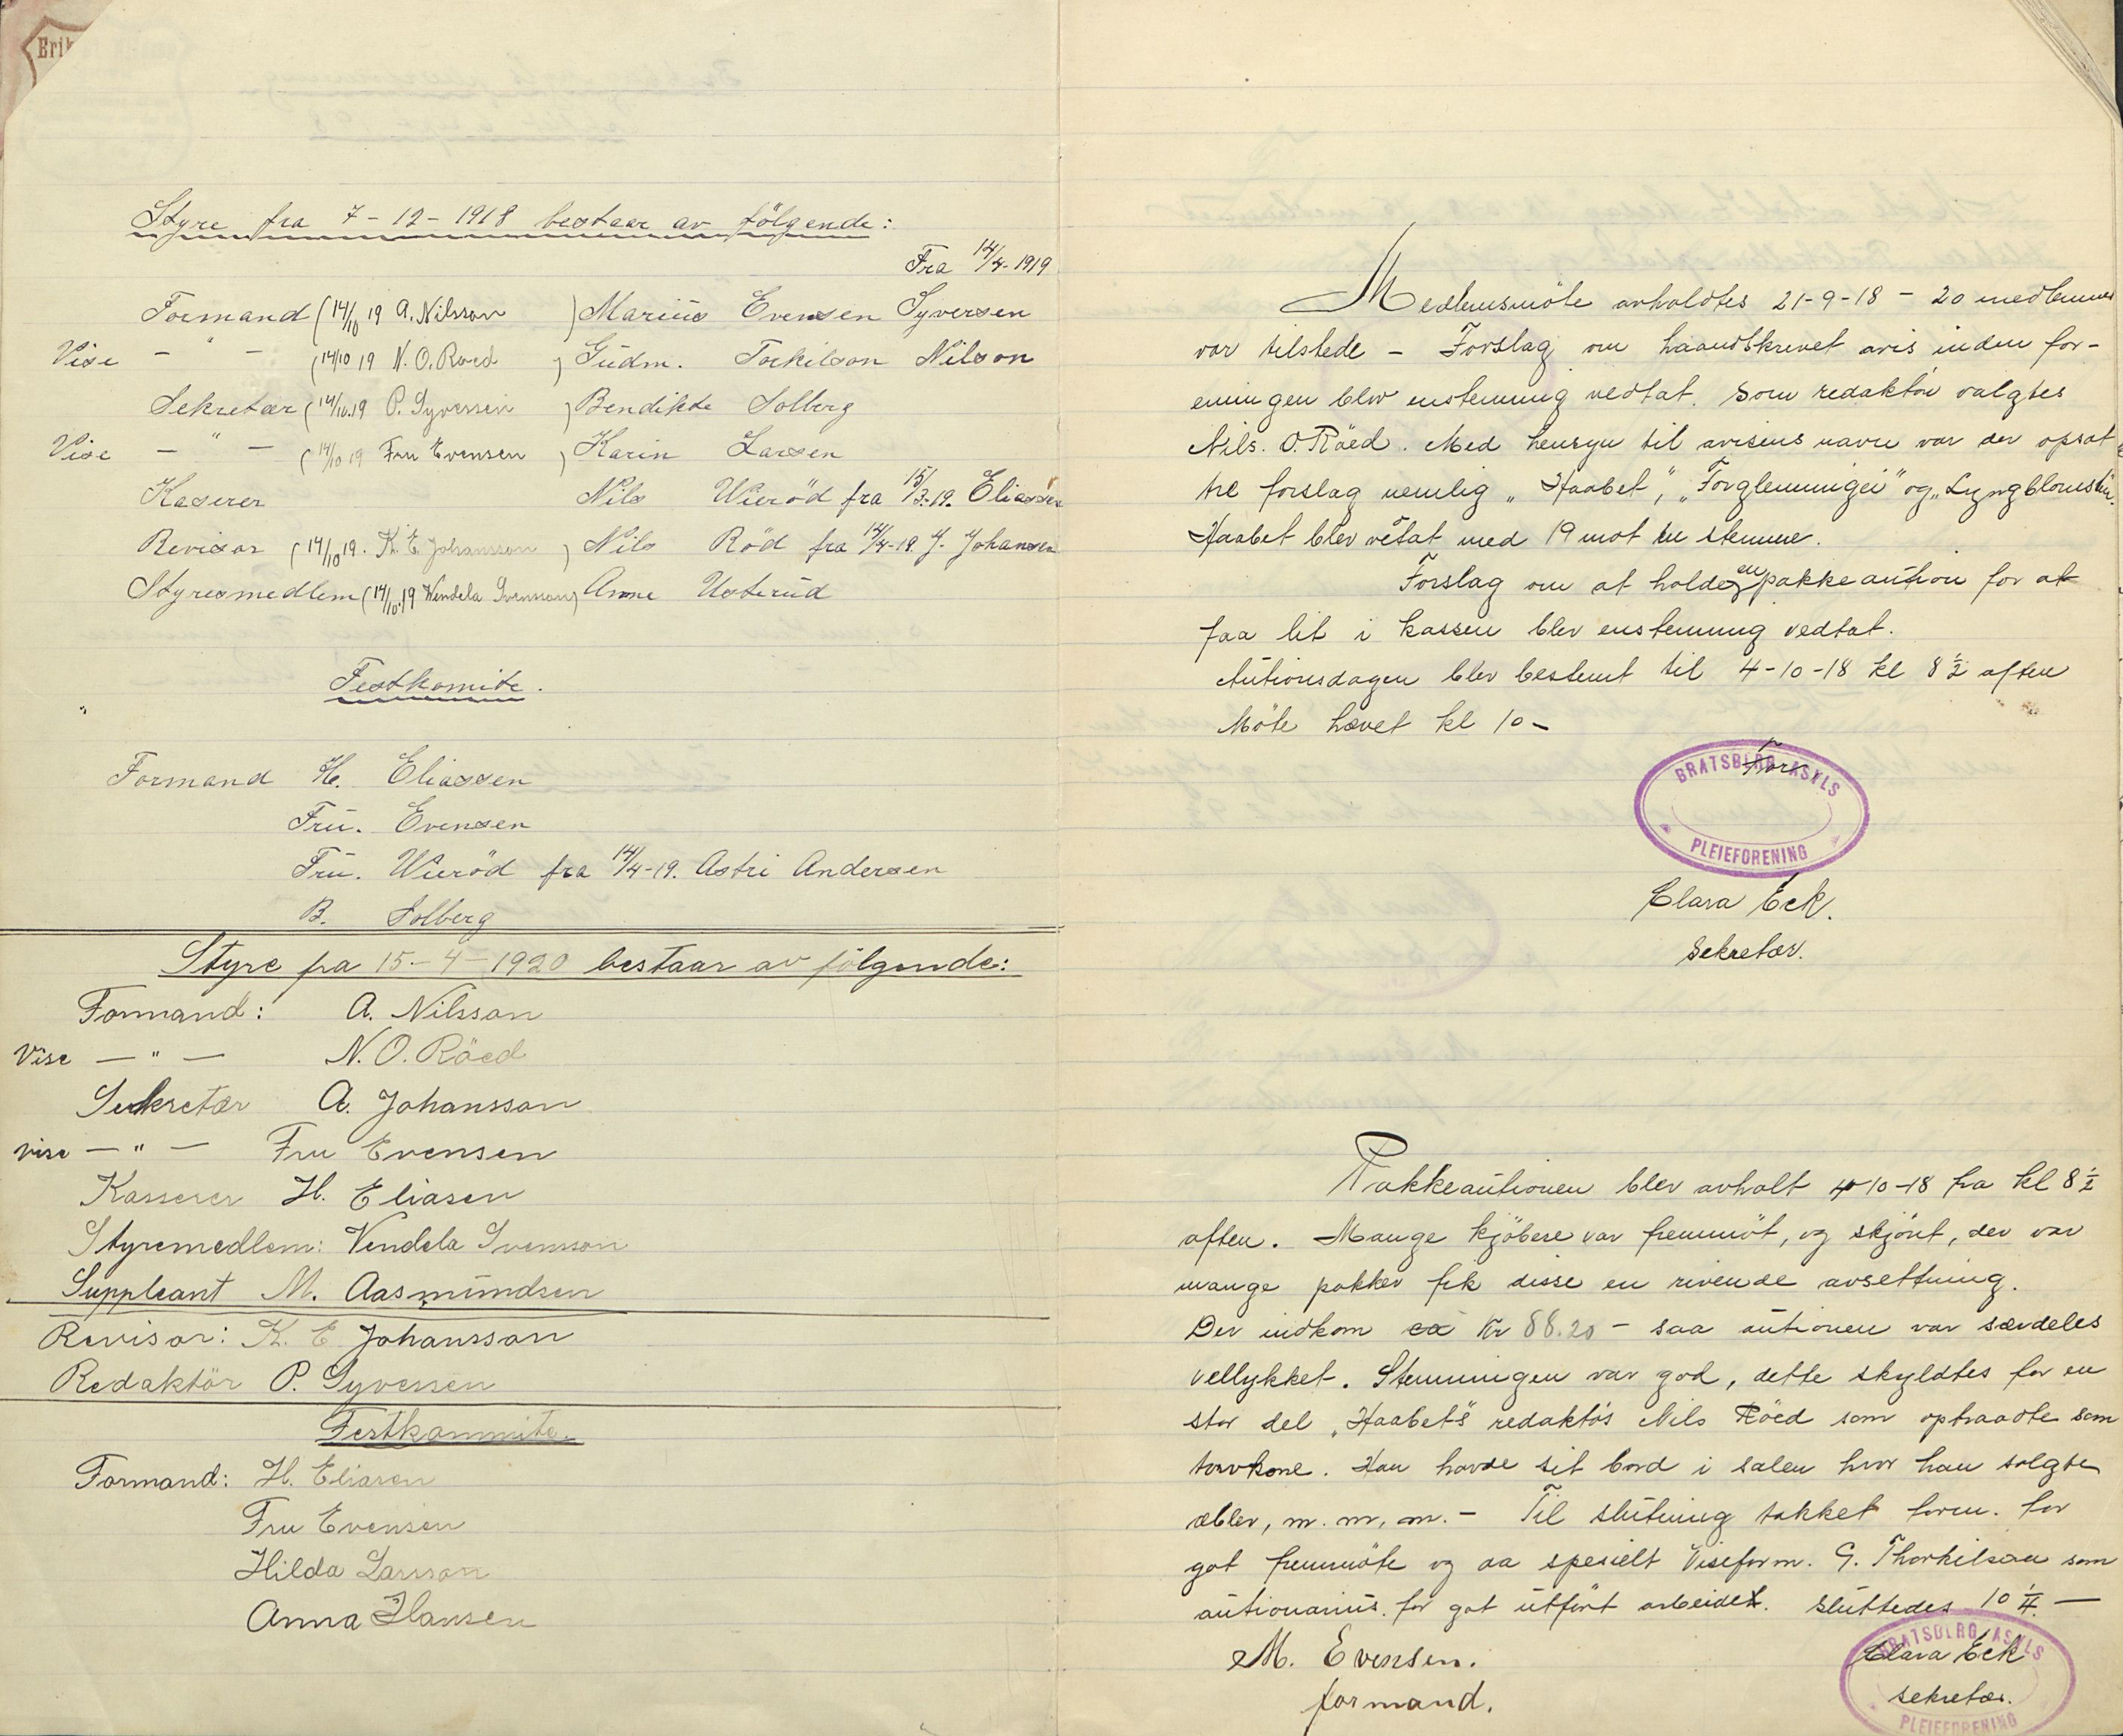 Erik
Styre fra 7-12-1918 bestaar av følgende:
Fra 14/4-1919
Formand (14/10 19 A. Nilsson) Marius Evensen Syversen
Vise - " - (14/10 19 N. O. Røed) Gudm. Torkilson Nilson
Sekretær (14/10.19 P. Syversen) Bendikte Solberg
Vise - " - (14/10 19 Fru Evensen) Karin Larsen
Kaserer Nils Wierød fra 15/3-19. Eliassen
Revisor (14/10 19. K. E. Johansson) Nils Rød fra 14/4-19. J. Johansen
Styresmedlem (14/10.19 Wendela Svensson) Anne Usterud
Festkomite.
Formand H. Eliassen
Frü. Evensen
Frü. Wierød fra 14/4-19. Astri Andersen
B. Solberg
Styre fra 15-4-1920 bestaar av følgende:
Formand: A. Nilsson
Vise — " — N. O. Röed
Sekretær A. Johansson
vise — " — Fru Evensen
Kasserer H. Eliasen
Styremedlem: Vendela Svensson
Suppleant M. Aasmundsen
Revisor: K. E Johansson
Redaktör P. Syversen
Festkommite.
Formand: H. Eliasen
Fru Evensen
Hilda Larsson
Anna Hansen
Medlemsmöte avholdtes 21-9-18 - 20 medlemmer
var tilstede - Forslag om haandskrevet avis inden for-
eningen blev enstemmig vedtat. Som redaktör valgtes
Nils. O. Röed. Med hensyn til avisens navn var der opsat
tre forslag nemlig „Haabet", „Forglemmigei" og „Lyngblomsten".
Haabet blev vetat med 19 mot en stemme.
Forslag om at holde en pakkeaution for at
faa lit i kassen blev enstemmig vedtat.
Autionsdagen blev bestemt til 4-10-18 kl 8 1/2 aften
Möte hævet kl 10 -
Form
BRATSBERG ASYLS
PLEIEFORENING
Clara Eck.
sekretær.
Pakkeautionen blev avholt 4-10-18 fra kl 8 1/2
aften. Mange kjöbere var fremmöt, og skjönt, der var
mange pakker fik disse en rivende avsettning.
Der indkom ca Kr 88.20 - saa autionen var særdeles
vellykket. Stemningen var god, dette skyldtes for en
stor del „Haabet's" redaktös Nils Röed som optraadte som
torvkone. Han havde sit bord i salen hvor han solgte
æbler, m. m, m. - Til slutning takket form. for
got fremmöte og aa spesielt Viseform. G. Thorkilsen som
autionarius. for got utfört arbeidet. sluttedes 10 1/4. —
M. Evensen.
formand.
BRATSBERG ASYLS
Clara Eck
sekretær.
PLEIEFORENING